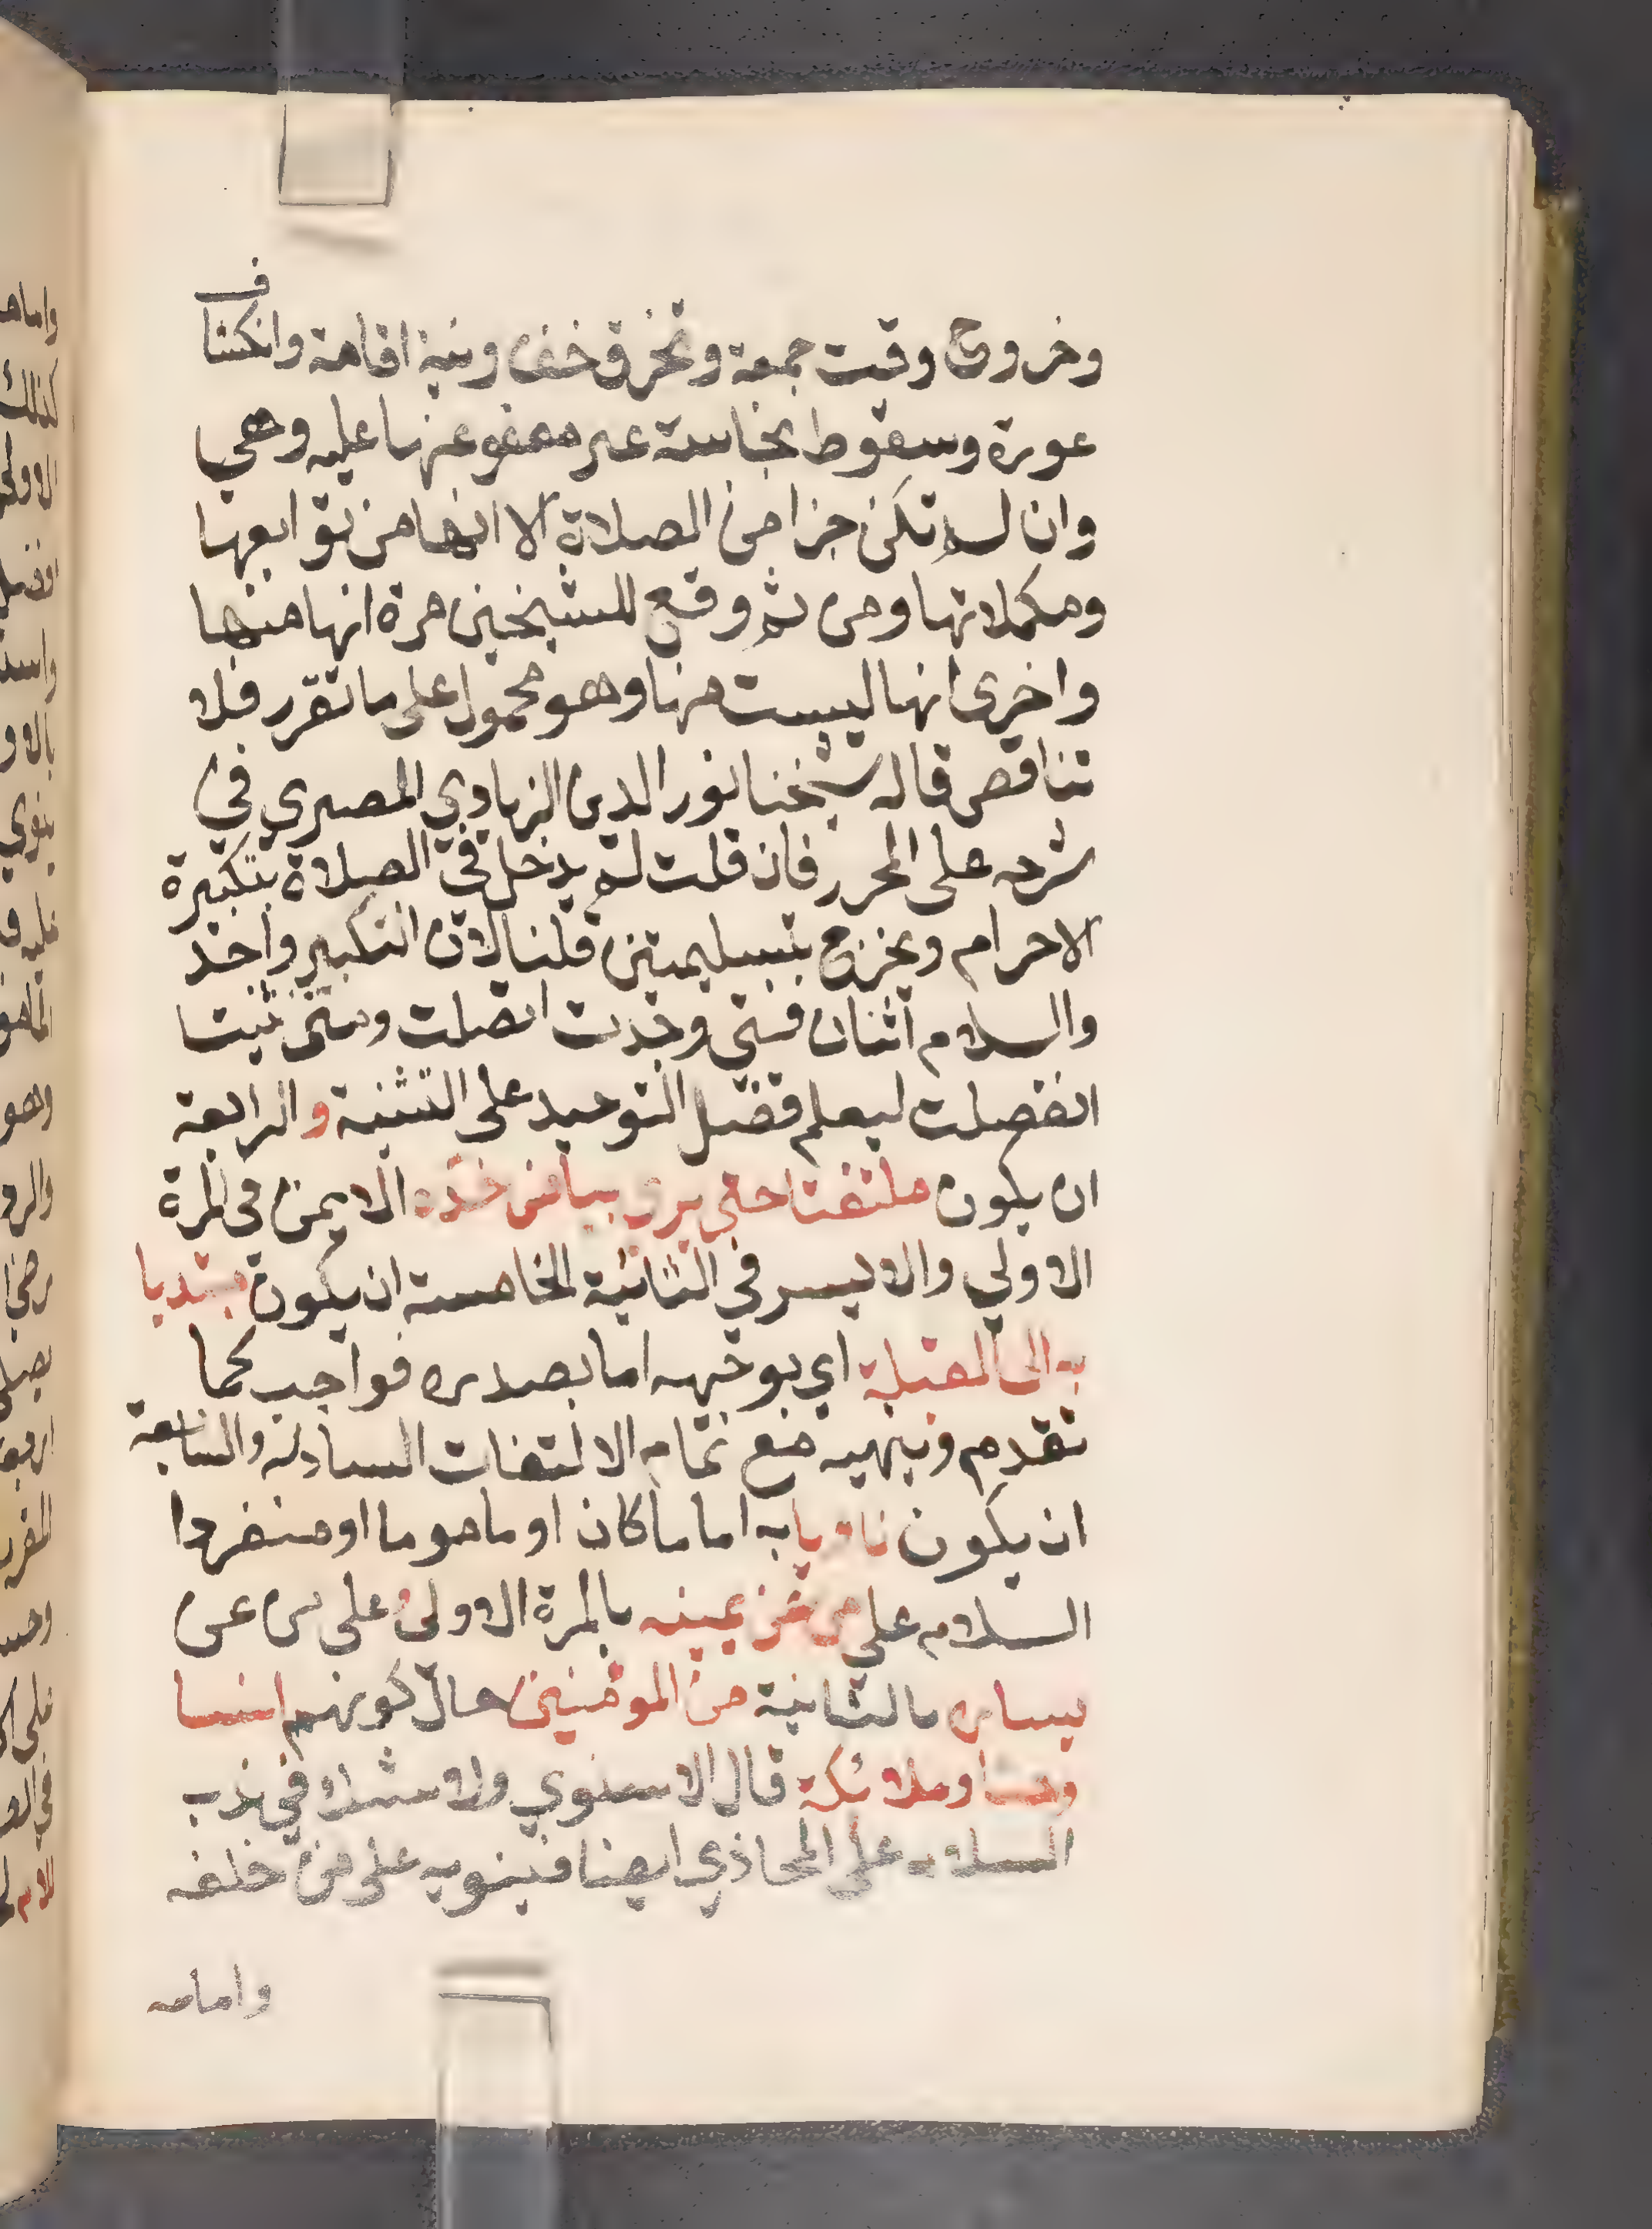 وخروج وقت جمعة وتخرق خف ونية اقامة وانكشاف
عورة وسقوط نجاسة غير معفو عنها عليه وهي
وان لم تكن جزا من الصلاة الا انها من توابعها
ومكملاتها ومن ثم وقع للشيخين مرة انها منها
واخرى انها ليست منها وهو محمول على ما تقرر فلا
تناقض قاله شيخنا نور الدين الزيادي المصري في
شرحه على المحرر فان قلت لم يدخل في الصلاة بتكبيرة
الاحرام ويخرج بتسليمتين قلنا لان التكبير واحد
والسلام اثنان فمتى وحدت اتصلت ومتى ثنيت
انفصلت ليعلم فضل التوحيد على التثنية والرابعة
ان يكون ملتفتا حتى يرى بياض خده الايمن في المرة
الاولي والايسر في الثانية الخامسة ان يكون مبتديا
به الى القبلة اي بوجهه اما بصدره فواجب كما
تقدم وينهيه مع تمام الالتفات السادسة والسابعة
ان يكون ناويا به اماما كان او ماموما او منفردا
السلام على من عن يمينه بالمرة الاولى وعلى من عن
يساره بالثانية من المومنين حال كونهم انسا
وجنا وملائكة قال الاسنوي ولا شك في ندب
السلام على المحاذي ايضا فينويه على من خلفه
وامامه